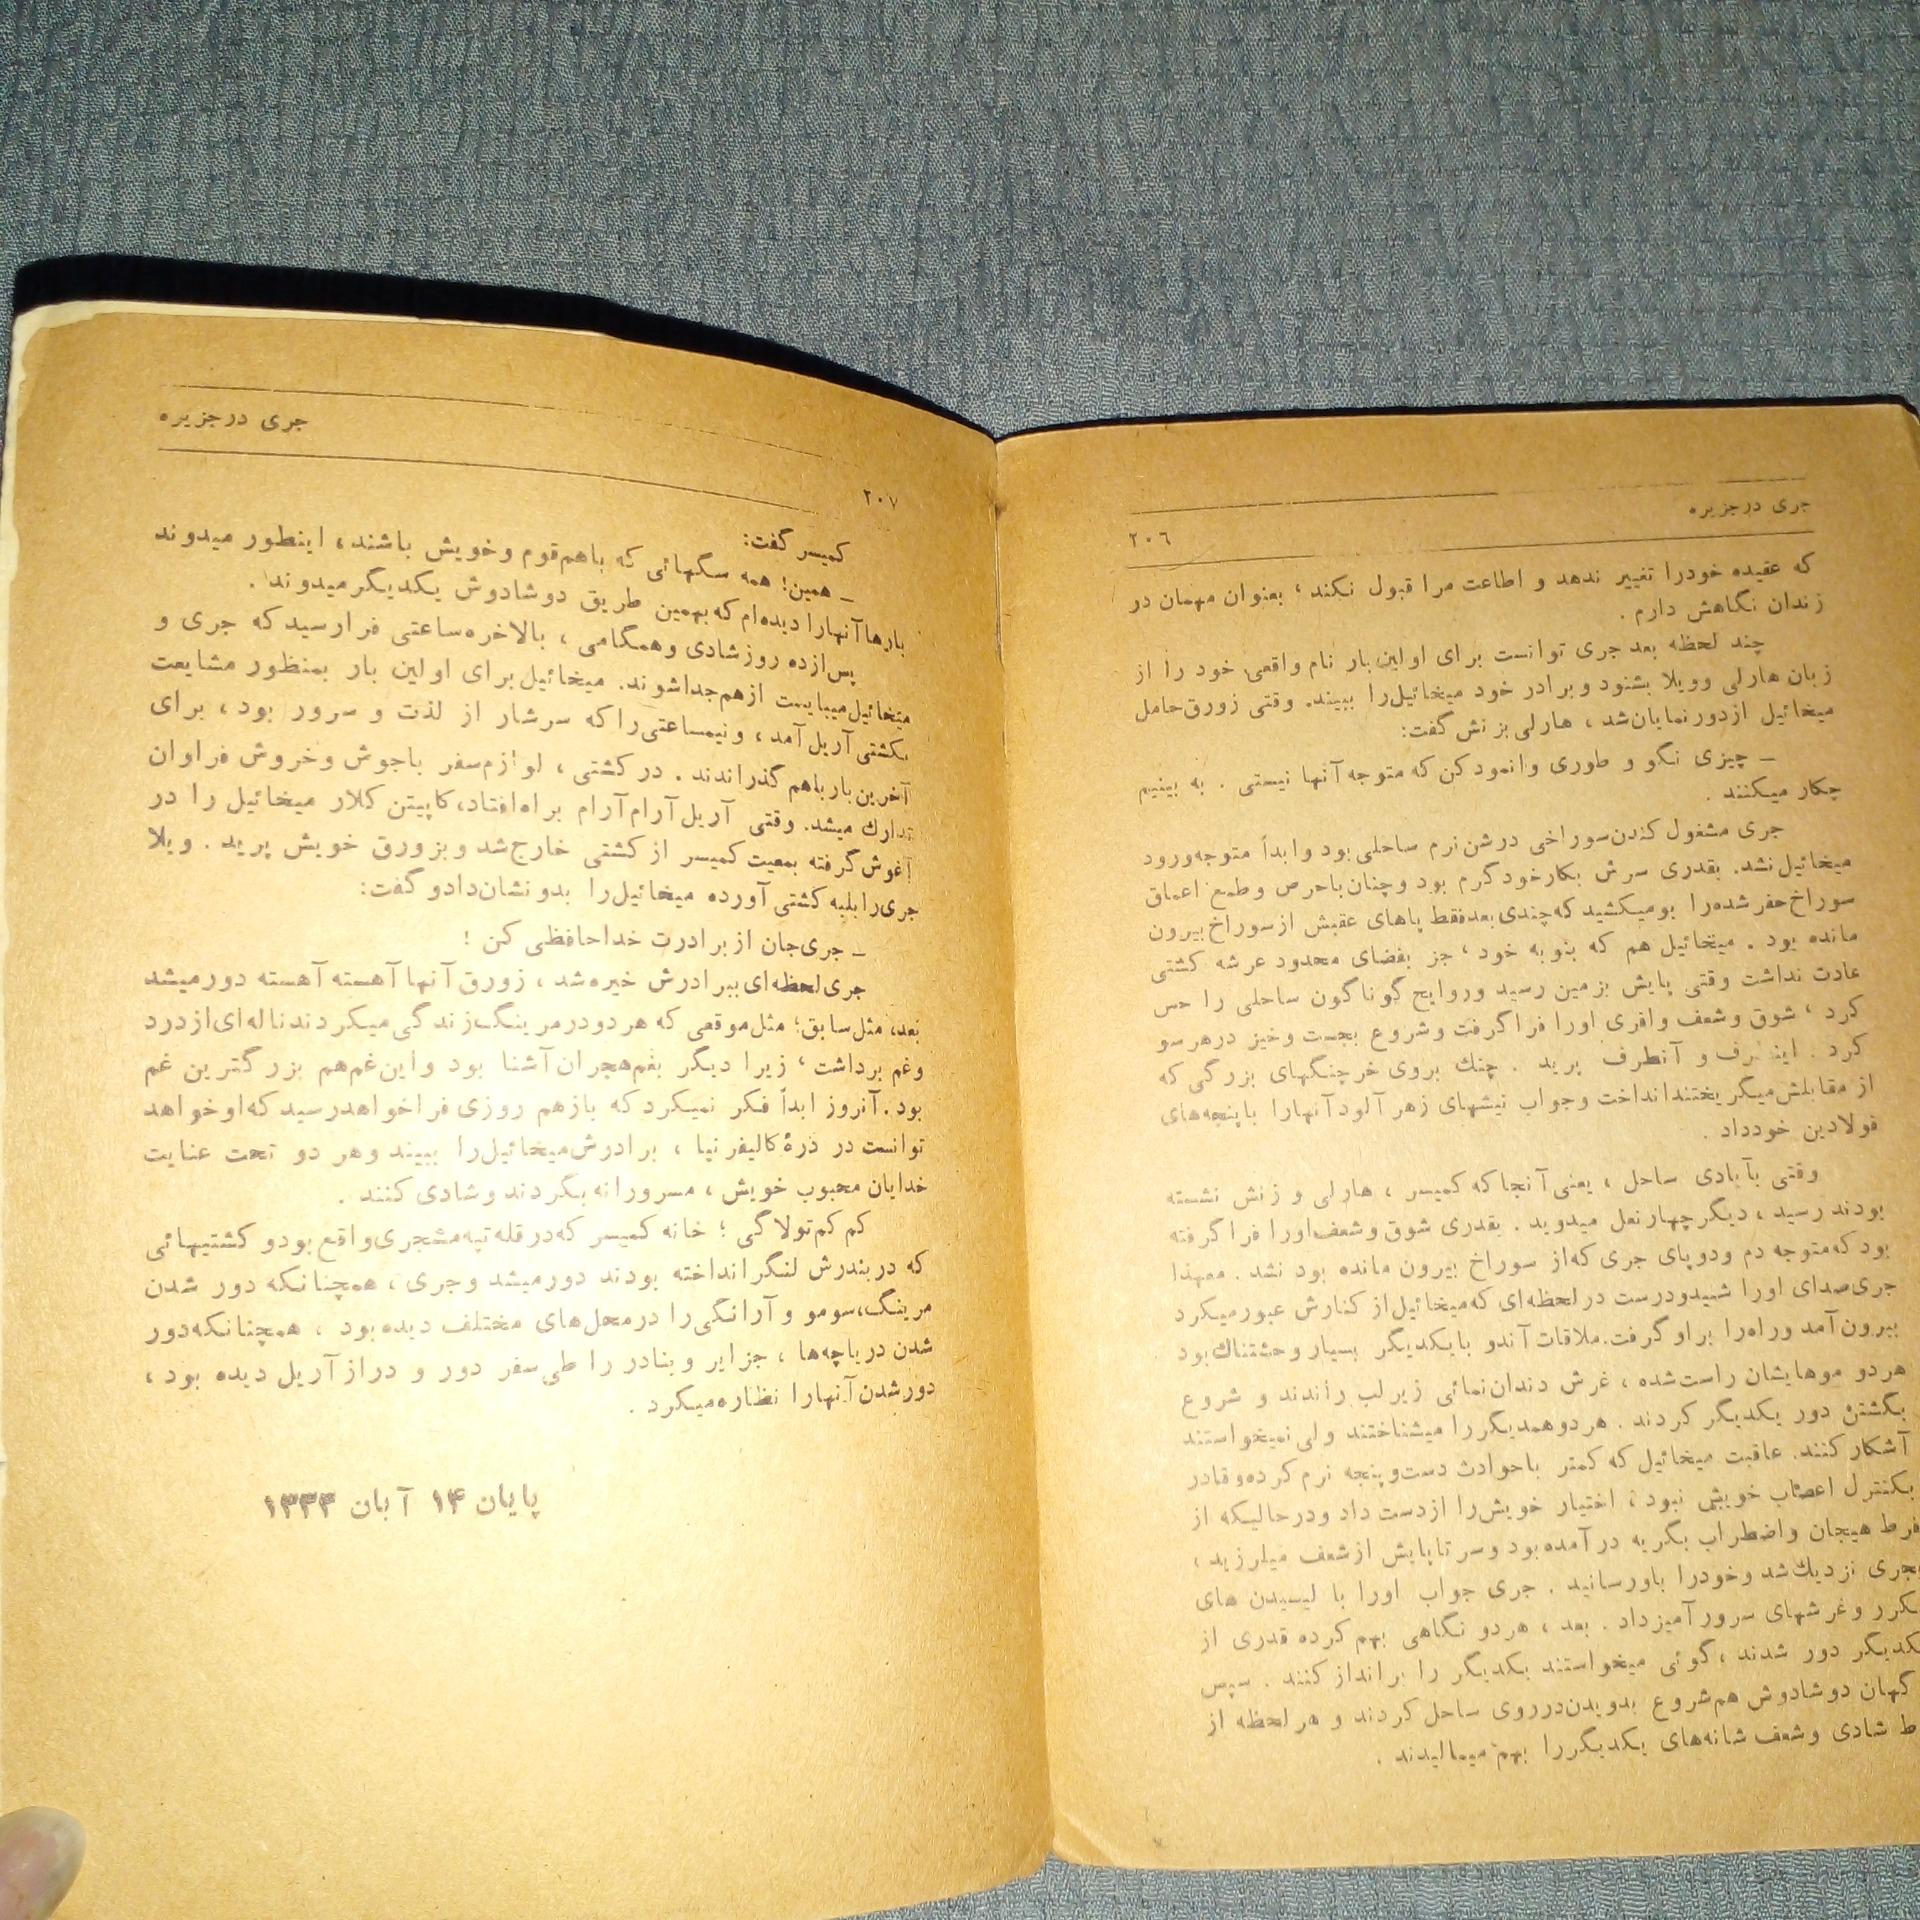 جری در جزیره
۲۰۶
که عقیده خودرا تغییر ندهد و اطاعت مرا قبول نکند، بعنوان مهمان در
زندان نگاهش دارم.
چند لحظه بعد جری توانست برای اولین بار نام واقعی خود را از
زبان هارلی و ویلا بشنود و برادر خود میخائیل را ببیند. وقتی زورق حامل
میخائیل از دور نمایان شد، هارلی بزنش گفت:
ـ چیزی نگو و طوری وانمود کن که متوجه آنها نیستی. به بینیم
چکار میکنند.
جری مشغول کندن سوراخی در شن نرم ساحلی بود و ابداً متوجه ورود
میخائیل نشد. بقدری سرش بکار خود گرم بود و چنان با حرص و طمع اعماق
سوراخ حفر شده را بو میکشید که چندی بعد فقط پاهای عقبش از سوراخ بیرون
مانده بود. میخائیل هم که بنوبه خود، جز بفضای محدود عرشه کشتی
عادت نداشت وقتی پایش بزمین رسید و روایح گوناگون ساحلی را حس
کرد، شوق و شعف وافری اورا فرا گرفت و شروع بجست و خیز در هر سو
کرد. اینطرف و آنطرف پرید. چنك بروی خرچنگهای بزرگی که
از مقابلش میگریختند انداخت و جواب نیشهای زهر آلود آنهارا با پنجه های
فولادین خود داد.
وقتی بآبادی ساحل، یعنی آنجا که کمیسر، هارلی و زنش نشسته
بودند رسید، دیگر چهار نعل میدوید. بقدری شوق و شعف اورا فرا گرفته
بود که متوجه دم و دوپای جری که از سوراخ بیرون مانده بود نشد. معهذا
جری صدای اورا شنید و درست در لحظه ای که میخائیل از کنارش عبور میکرد
بیرون آمد و راه را بر او گرفت. ملاقات آندو با یکدیگر بسیار وحشتناك بود
هر دو موهایشان راست شده، غرش دندان نمائی زیر لب راندند و شروع
بگشتن دور یکدیگر کردند. هر دو همدیگر را میشناختند ولی نمیخواستند
آشکار کنند. عاقبت میخائیل که کمتر با حوادث دست و پنجه نرم کرده و قادر
بکنترل اعصاب خویش نبود، اختیار خویش را از دست داد و در حالیکه از
فرط هیجان و اضطراب بگریه در آمده بود و سر تا پایش از شعف میلرزید،
بجری نزدیك شد و خودرا باو رسانید. جری جواب اورا با لیسیدن های
مکرر و غرشهای سرور آمیز داد. بعد، هر دو نگاهی بهم کرده قدری از
یکدیگر دور شدند، گوئی میخواستند یکدیگر را برانداز کنند. سپس
گهان دوشادوش هم شروع بدویدن در روی ساحل کردند و هر لحظه از
ط شادی و شعف شانه های یکدیگر را بهم میمالیدند.
جری در جزیره
۲۰۷
کمیسر گفت:
ـ همین! همه سگهائی که باهم قوم و خویش باشند، اینطور میدوند
بارها آنهارا دیده ام که بهمین طریق دوشادوش یکدیگر میدوند.
پس از ده روز شادی و همگامی، بالاخره ساعتی فرا رسید که جری و
میخائیل میبایست از هم جدا شوند. میخائیل برای اولین بار بمنظور مشایعت
بکشتی آریل آمد، و نیمساعتی را که سرشار از لذت و سرور بود، برای
آخرین بار باهم گذراندند. در کشتی، لوازم سفر با جوش و خروش فراوان
تدارك میشد. وقتی آریل آرام آرام براه افتاد، کاپیتن کلار میخائیل را در
آغوش گرفته بمعیت کمیسر از کشتی خارج شد و بزورق خویش پرید. ویلا
جری را بلبه کشتی آورده میخائیل را بدو نشان داد و گفت:
ـ جری جان از برادرت خداحافظی کن!
جری لحظه ای ببرادرش خیره شد، زورق آنها آهسته آهسته دور میشد
بعد، مثل سابق؛ مثل موقعی که هر دو در مرینگ زندگی میکردند ناله ای از درد
و غم برداشت، زیرا دیگر بغم هجران آشنا بود و این غم هم بزرگترین غم
بود. آنروز ابداً فکر نمیکرد که بازهم روزی فرا خواهد رسید که او خواهد
توانست در درهٔ کالیفرنیا، برادرش میخائیل را ببیند و هر دو تحت عنایت
خدایان محبوب خویش، مسرورانه بگردند و شادی کنند.
کم کم تولاگی؛ خانه کمیسر که در قله تپه مشجری واقع بود و کشتیهائی
که در بندرش لنگر انداخته بودند دور میشد و جری، همچنانکه دور شدن
مرینگ، سومو و آرانگی را در محل های مختلف دیده بود، همچنانکه دور
شدن دریاچه ها، جزایر و بنادر را طی سفر دور و دراز آریل دیده بود،
دور شدن آنهارا نظاره میکرد.
پایان ۱۴ آبان ۱۳۳۳